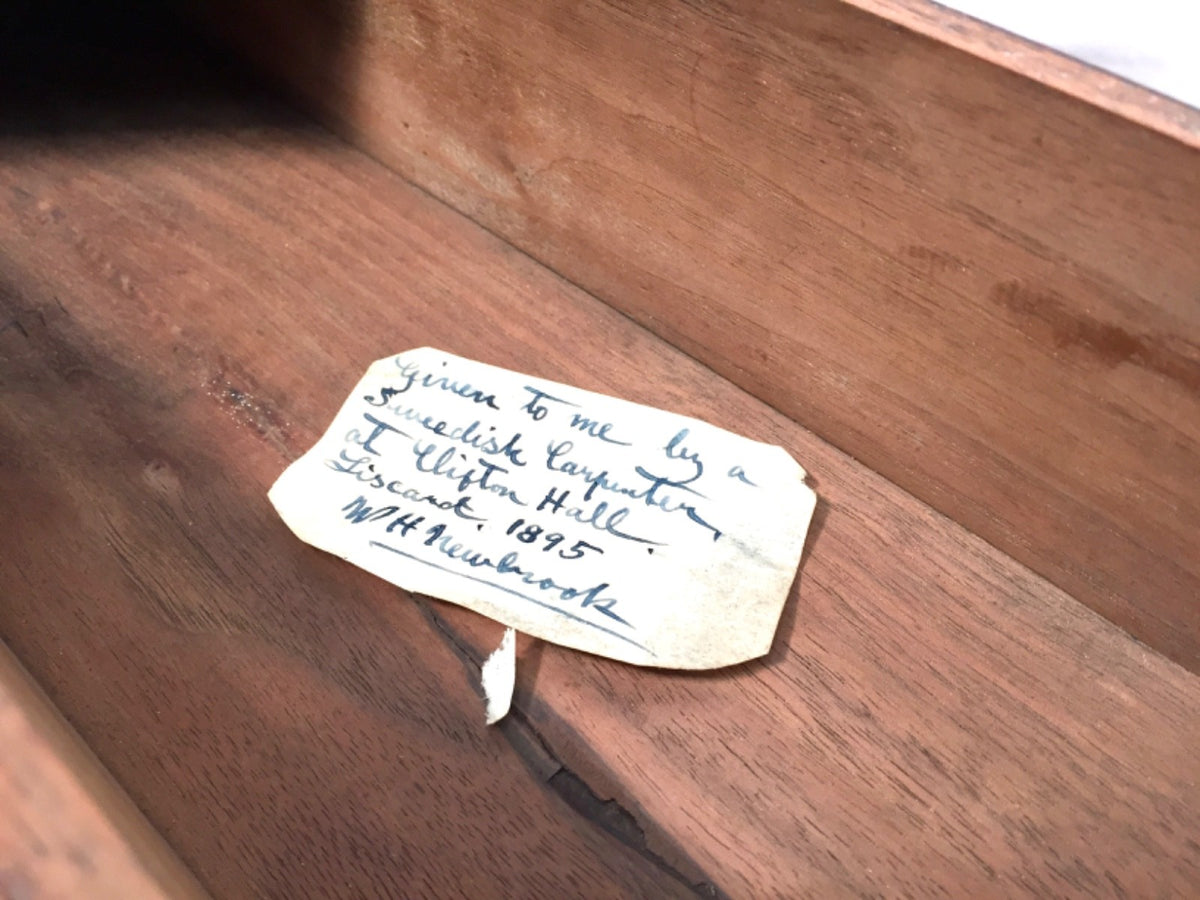 Given to me by a
Swedish Carpenter,
at Clifton Hall.
Liscard. 1895
W H Newbrook